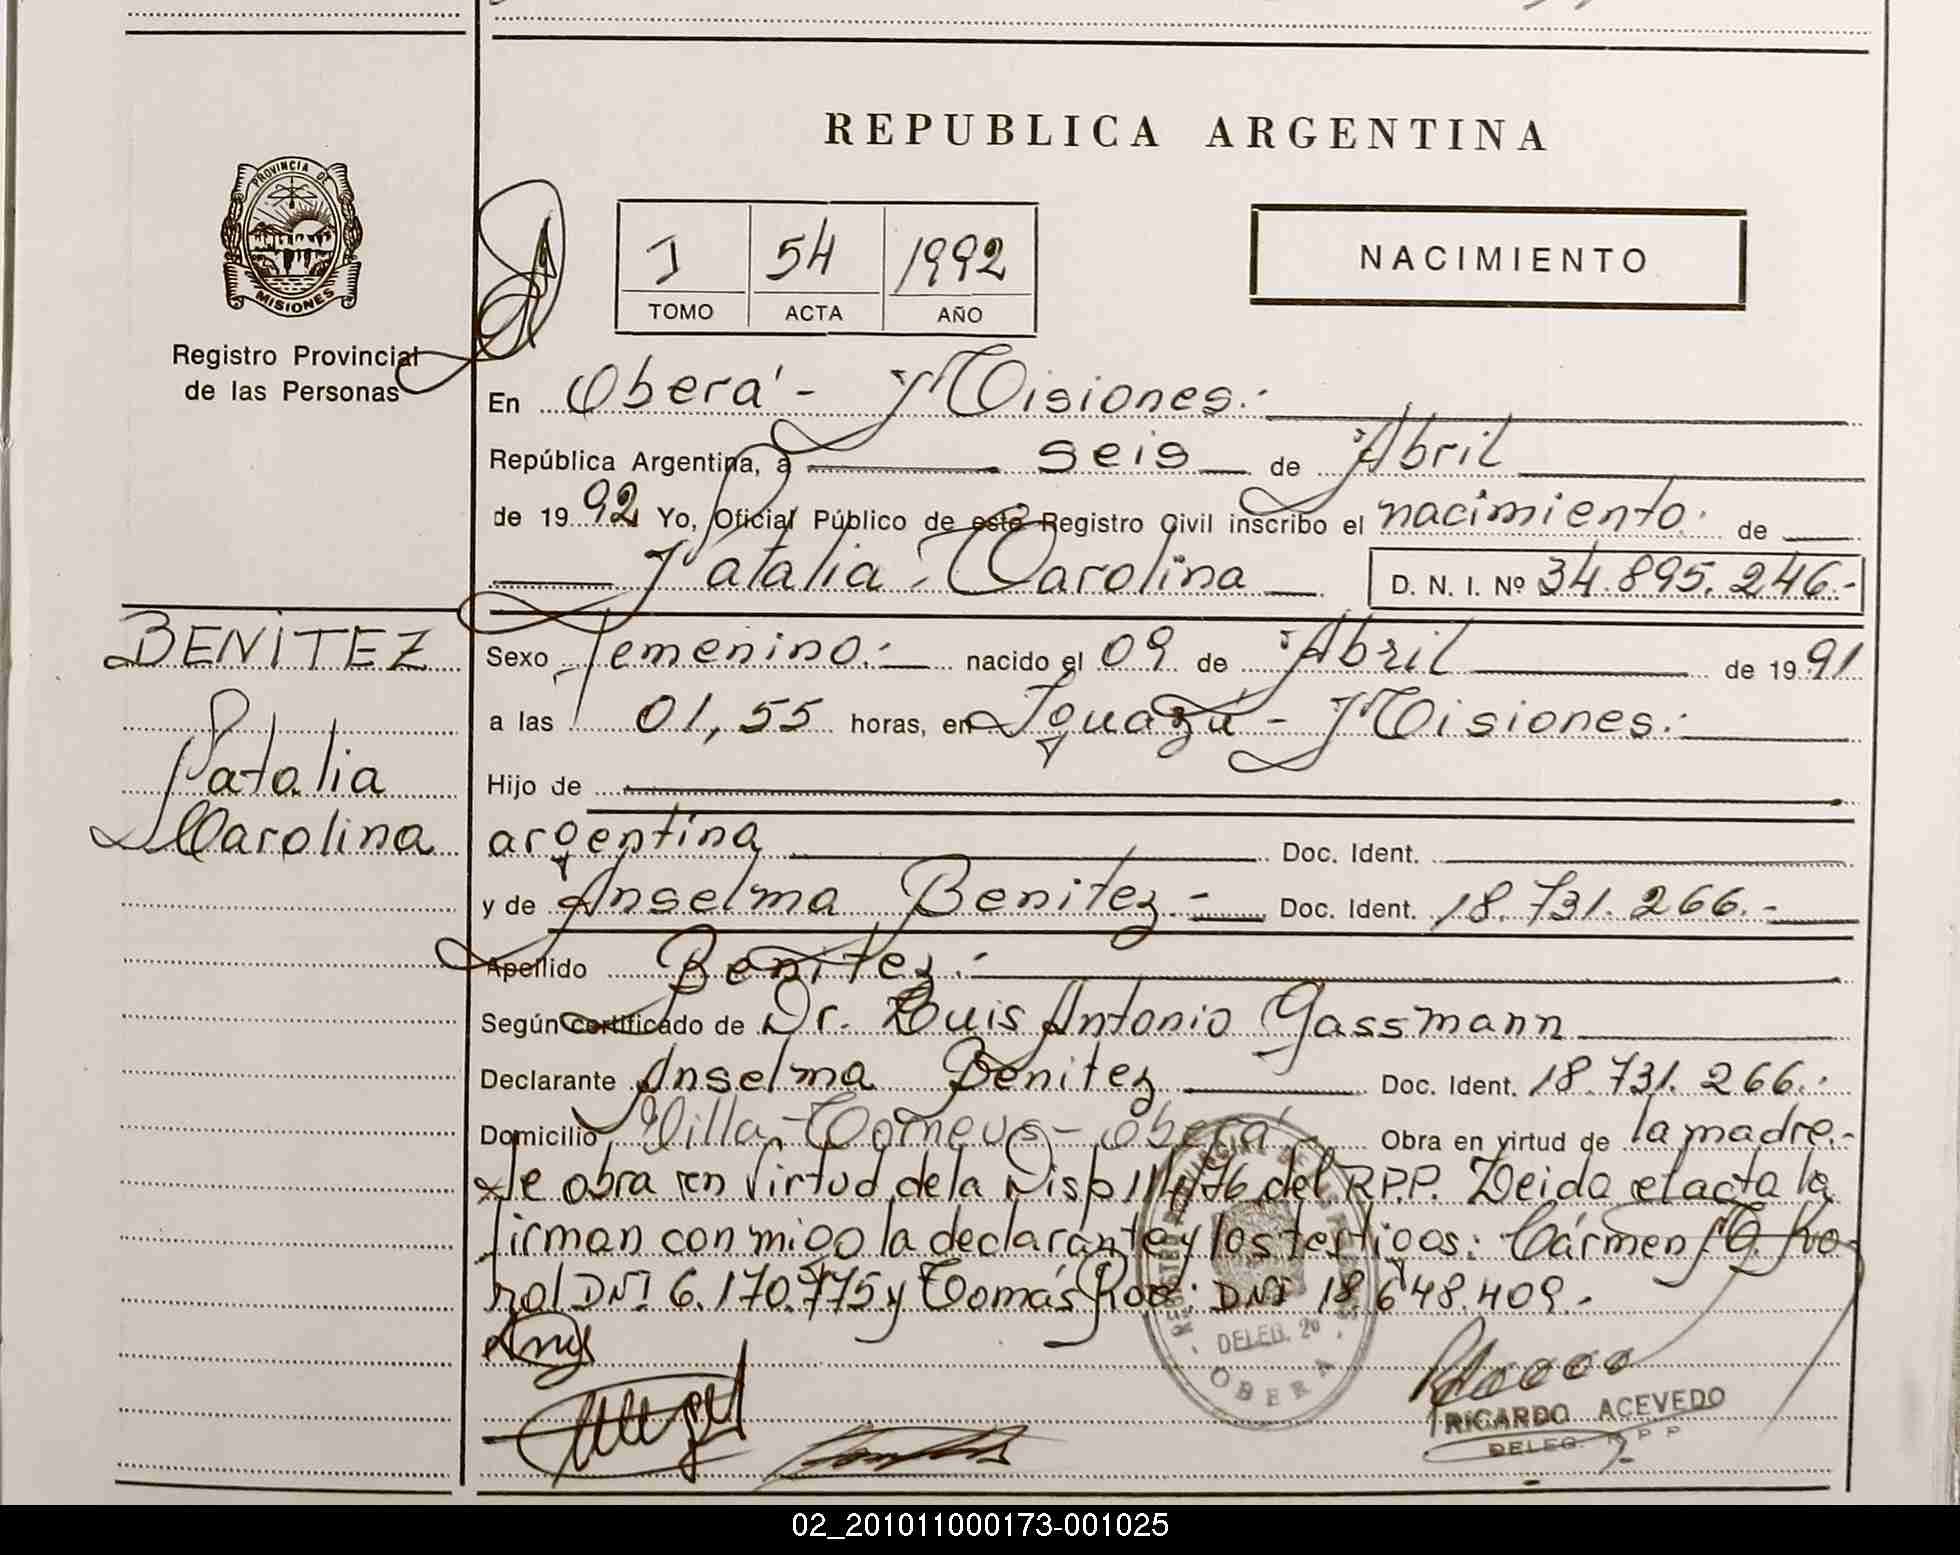 REPUBLICA ARGENTINA
PROVINCIA DE
MISIONES
Registro Provincial
de las Personas
J 54 1992
TOMO ACTA AÑO
NACIMIENTO
En Oberá - Misiones.-
República Argentina, a seis de Abril
de 1992 Yo, Oficial Público de este Registro Civil inscribo el nacimiento. de
Natalia Carolina D. N. I. Nº 34.895.246.-
BENITEZ
Natalia
Carolina
Sexo femenino.- nacido el 09 de Abril de 1991
a las 01,55 horas, en Iguazú - Misiones.-
Hijo de
argentina Doc. Ident.
y de Anselma Benitez.- Doc. Ident. 18.731.266.-
Apellido Benitez.-
Según certificado de Dr. Luis Antonio Gassmann
Declarante Anselma Benitez Doc. Ident. 18.731.266.-
Domicilio Villa - Oberá Obra en virtud de la madre.-
Se obra en virtud de la Disp 111/76 del R.P.P. Leida el acta la
firman con migo la declarante y los testigos: Cármen Ko-
zal DNI 6.170.775 y Tomás DNI 18.648.409.-
DELEG. 2º
OBERA
RICARDO ACEVEDO
DELEG. R P P
02_201011000173-001025